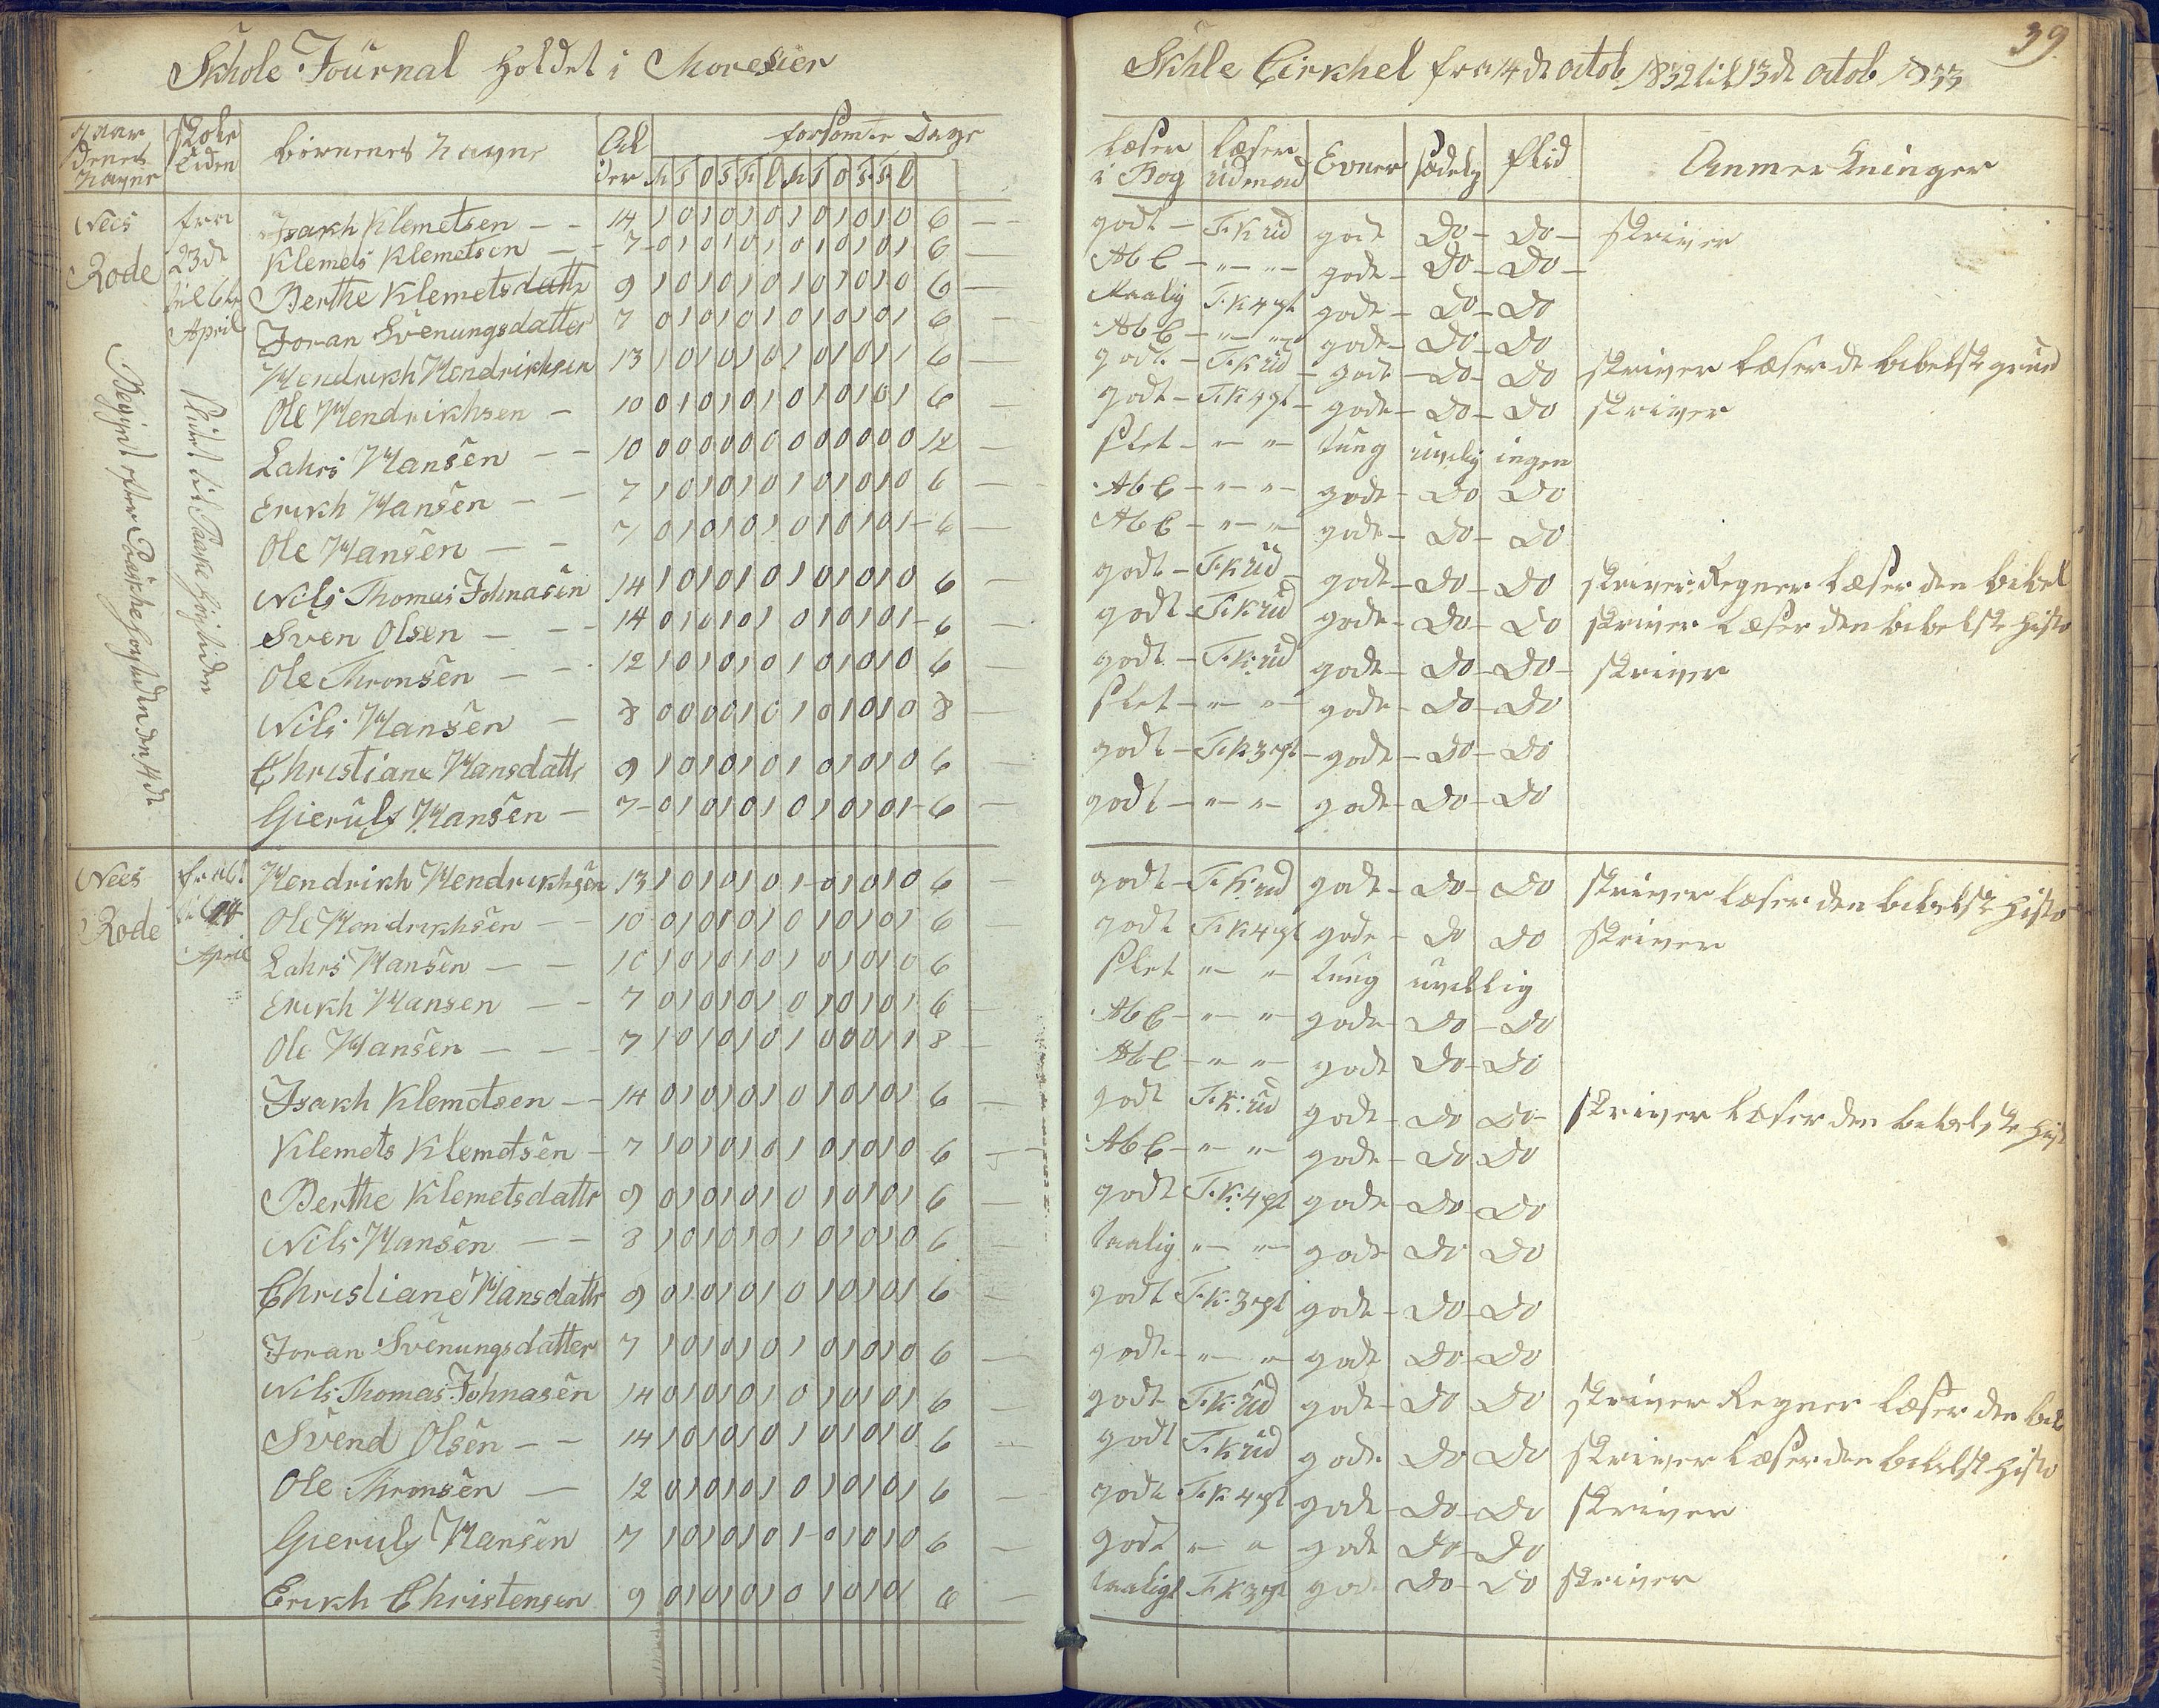 39.
Skhole Journal holdet i Moresier Skhle Cirkhel fra 14 de octob 1832 til 13 de octob 1833
Gaar denes nagne | Skole tiden | börnenes nagne | Ald der | forsömte Dage | læser i Bog | læser udenad | Evner | sædely | flid | Anmerkninger
M T O T F L M T O T F L
Nees Rode
fra 23 de til 6 te April
Begynt efter Paaske høytiden den 14 de
slutet til Paaske høytiden
Isakh Klemetsen — — 14 1 0 1 0 1 0 1 0 1 0 1 0 6 — godt — F. K ud gode Do — Do — skriver
Klemets Klemetsen — 7 0 1 0 1 0 1 0 1 0 1 0 1 6 — Ab C — " — " — gode — Do — Do —
Berthe Klemetsdattr 9 1 0 1 0 1 0 1 0 1 0 1 0 6 — Maalig F. K 4 pt gode — Do — Do
Joran Svenungsdatter 7 0 1 0 1 0 1 0 1 0 1 0 1 6 — Ab C — " — " gode — Do — Do
Hendrikh Hendrikhsen 13 1 0 1 0 1 0 1 0 1 0 1 1 6 — godt — F. K ud — gode — Do — Do skriver læser de bibelske grund
Ole Hendrikhsen — 10 0 1 0 1 0 1 0 1 0 1 0 1 6 — godt — F. K 4 pt — gode — Do — Do skriver
Lahrs Hansen — — 10 0 0 0 0 0 0 0 0 0 0 0 0 12 — slet — " — " tung uvilig ingen
Erikh Hansen — — 7 1 0 1 0 1 0 1 0 1 0 1 0 6 — Ab C — " — " — gode — Do Do
Ole Hansen — — 7 0 1 0 1 0 1 0 1 0 1 0 1 — 6 — Ab C — " — " — gode — Do — Do
Nils Thomas Johnasen 14 1 0 1 0 1 0 1 0 1 0 1 0 6 — godt — F. K ud — gode — Do — Do skriver: Regner læser den bibel
Sven Olsen — — 14 0 1 0 1 0 1 0 1 0 1 0 1 — 6 — godt — F. K ud gode — Do — Do skriver læser den bibelske histo
Ole Thronsen — — 12 1 0 1 0 1 0 1 0 1 0 1 0 6 — godt — F. K: ud gode — Do — Do — skriver
Nils Hansen — 8 0 0 0 0 1 0 1 0 1 0 1 0 8 — slet — " — " — gode — Do — Do
Christiane Hansdattr 9 1 0 1 0 1 0 1 0 1 0 1 0 6 — godt — F. K 3 pt — gode — Do — Do
Gierulf Hansen — 7 — 0 1 0 1 0 1 0 1 0 1 0 1 — 6 — godt — " — " — gode — Do — Do
Nees Rode
til 14 April
Hendrikh Hendrikhsen 13 1 0 1 0 1 0 1 — 0 1 0 1 0 6 — godt — F. K: ud gode — Do — Do skriver læser den bibelske histo
Ole Hendrikhsen — — 10 0 1 0 1 0 1 0 1 0 1 0 1 6 — godt F. K 4 pt gode — Do Do skriver
Lahrs Hansen — — 10 1 0 1 0 1 0 1 0 1 0 1 0 6 slet " — " tung uvillig
Erikh Hansen — — 7 0 1 0 1 0 1 0 1 0 1 0 1 6 — Ab C — " — " — gode — Do — Do
Ole Hansen — — 7 1 0 1 0 1 0 1 0 0 0 1 1 8 — Ab C — " — " — gode Do — Do
Isakh Klemetsen — 14 0 1 0 1 0 1 0 1 0 1 0 1 6 — godt F. K: ud gode — Do Do — skriver læser den bibelske hist
Klemets Klemetsen — 7 1 0 1 0 1 0 1 0 1 0 1 0 6 — Ab C — " — " — gode — Do Do
Berthe Klemetsdattr 9 0 1 0 1 0 1 0 1 0 1 0 1 6 — godt F. K: 4 pt gode — Do — Do
Nils Hansen — — 8 1 0 1 0 1 0 1 0 1 0 1 0 6 — taalig " — " — gode Do Do
Christiane Hansdattr 9 0 1 0 1 0 1 0 1 0 1 0 1 6 — godt F. K. 3 pt gode — Do — Do
Joran Svenungsdatter 7 1 0 1 0 1 0 1 0 1 0 1 0 6 — godt — " — " — gode Do — Do
Nils Thomas Johnasen 14 0 1 0 1 0 1 0 1 0 1 0 1 6 — godt F. K. ud gode — Do Do skriver Regner læser den bib
Svend Olsen — — 14 1 0 1 0 1 0 1 0 1 0 1 0 6 — godt F. K ud gode Do Do skriver læser den bibelske histo
Ole Thronsen — 12 0 1 0 1 0 1 0 1 0 1 0 1 6 — godt F. K 4 pt gode — Do — Do skriver
Gierulf Hansen 7 1 0 1 0 1 0 1 — 0 1 0 1 0 6 — godt " — " gode Do — Do
Erikh Christensen 9 0 1 0 1 0 1 0 1 0 1 0 1 6 — taaligt F. K 3 pt gode Do — Do skriver